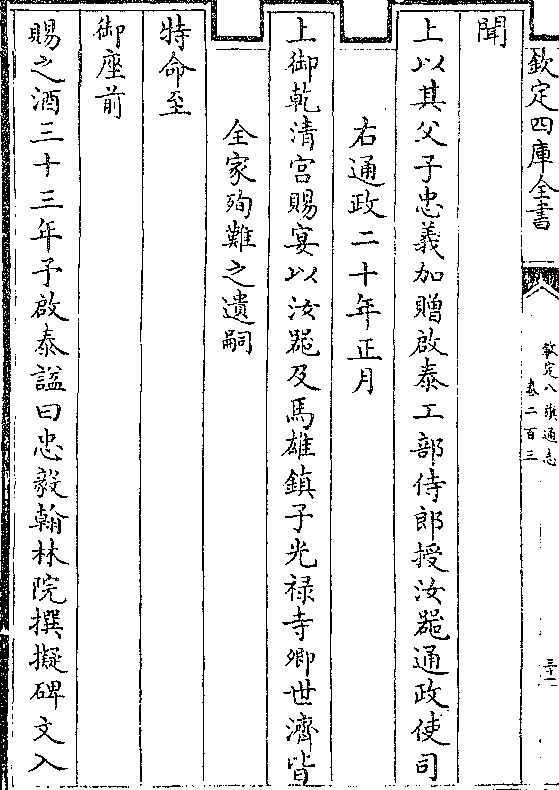 欽定四庫全書
欽定八旗通志
卷二百三
三十一
聞
上以其父子忠義加贈啟泰工部侍郎授汝器通政使司
右通政二十年正月
上御乾清宮賜宴以汝器及馬雄鎮子光祿寺卿世濟皆
全家殉難之遺嗣
特命至
御座前
賜之酒三十三年予啟泰諡曰忠毅翰林院撰擬碑文入